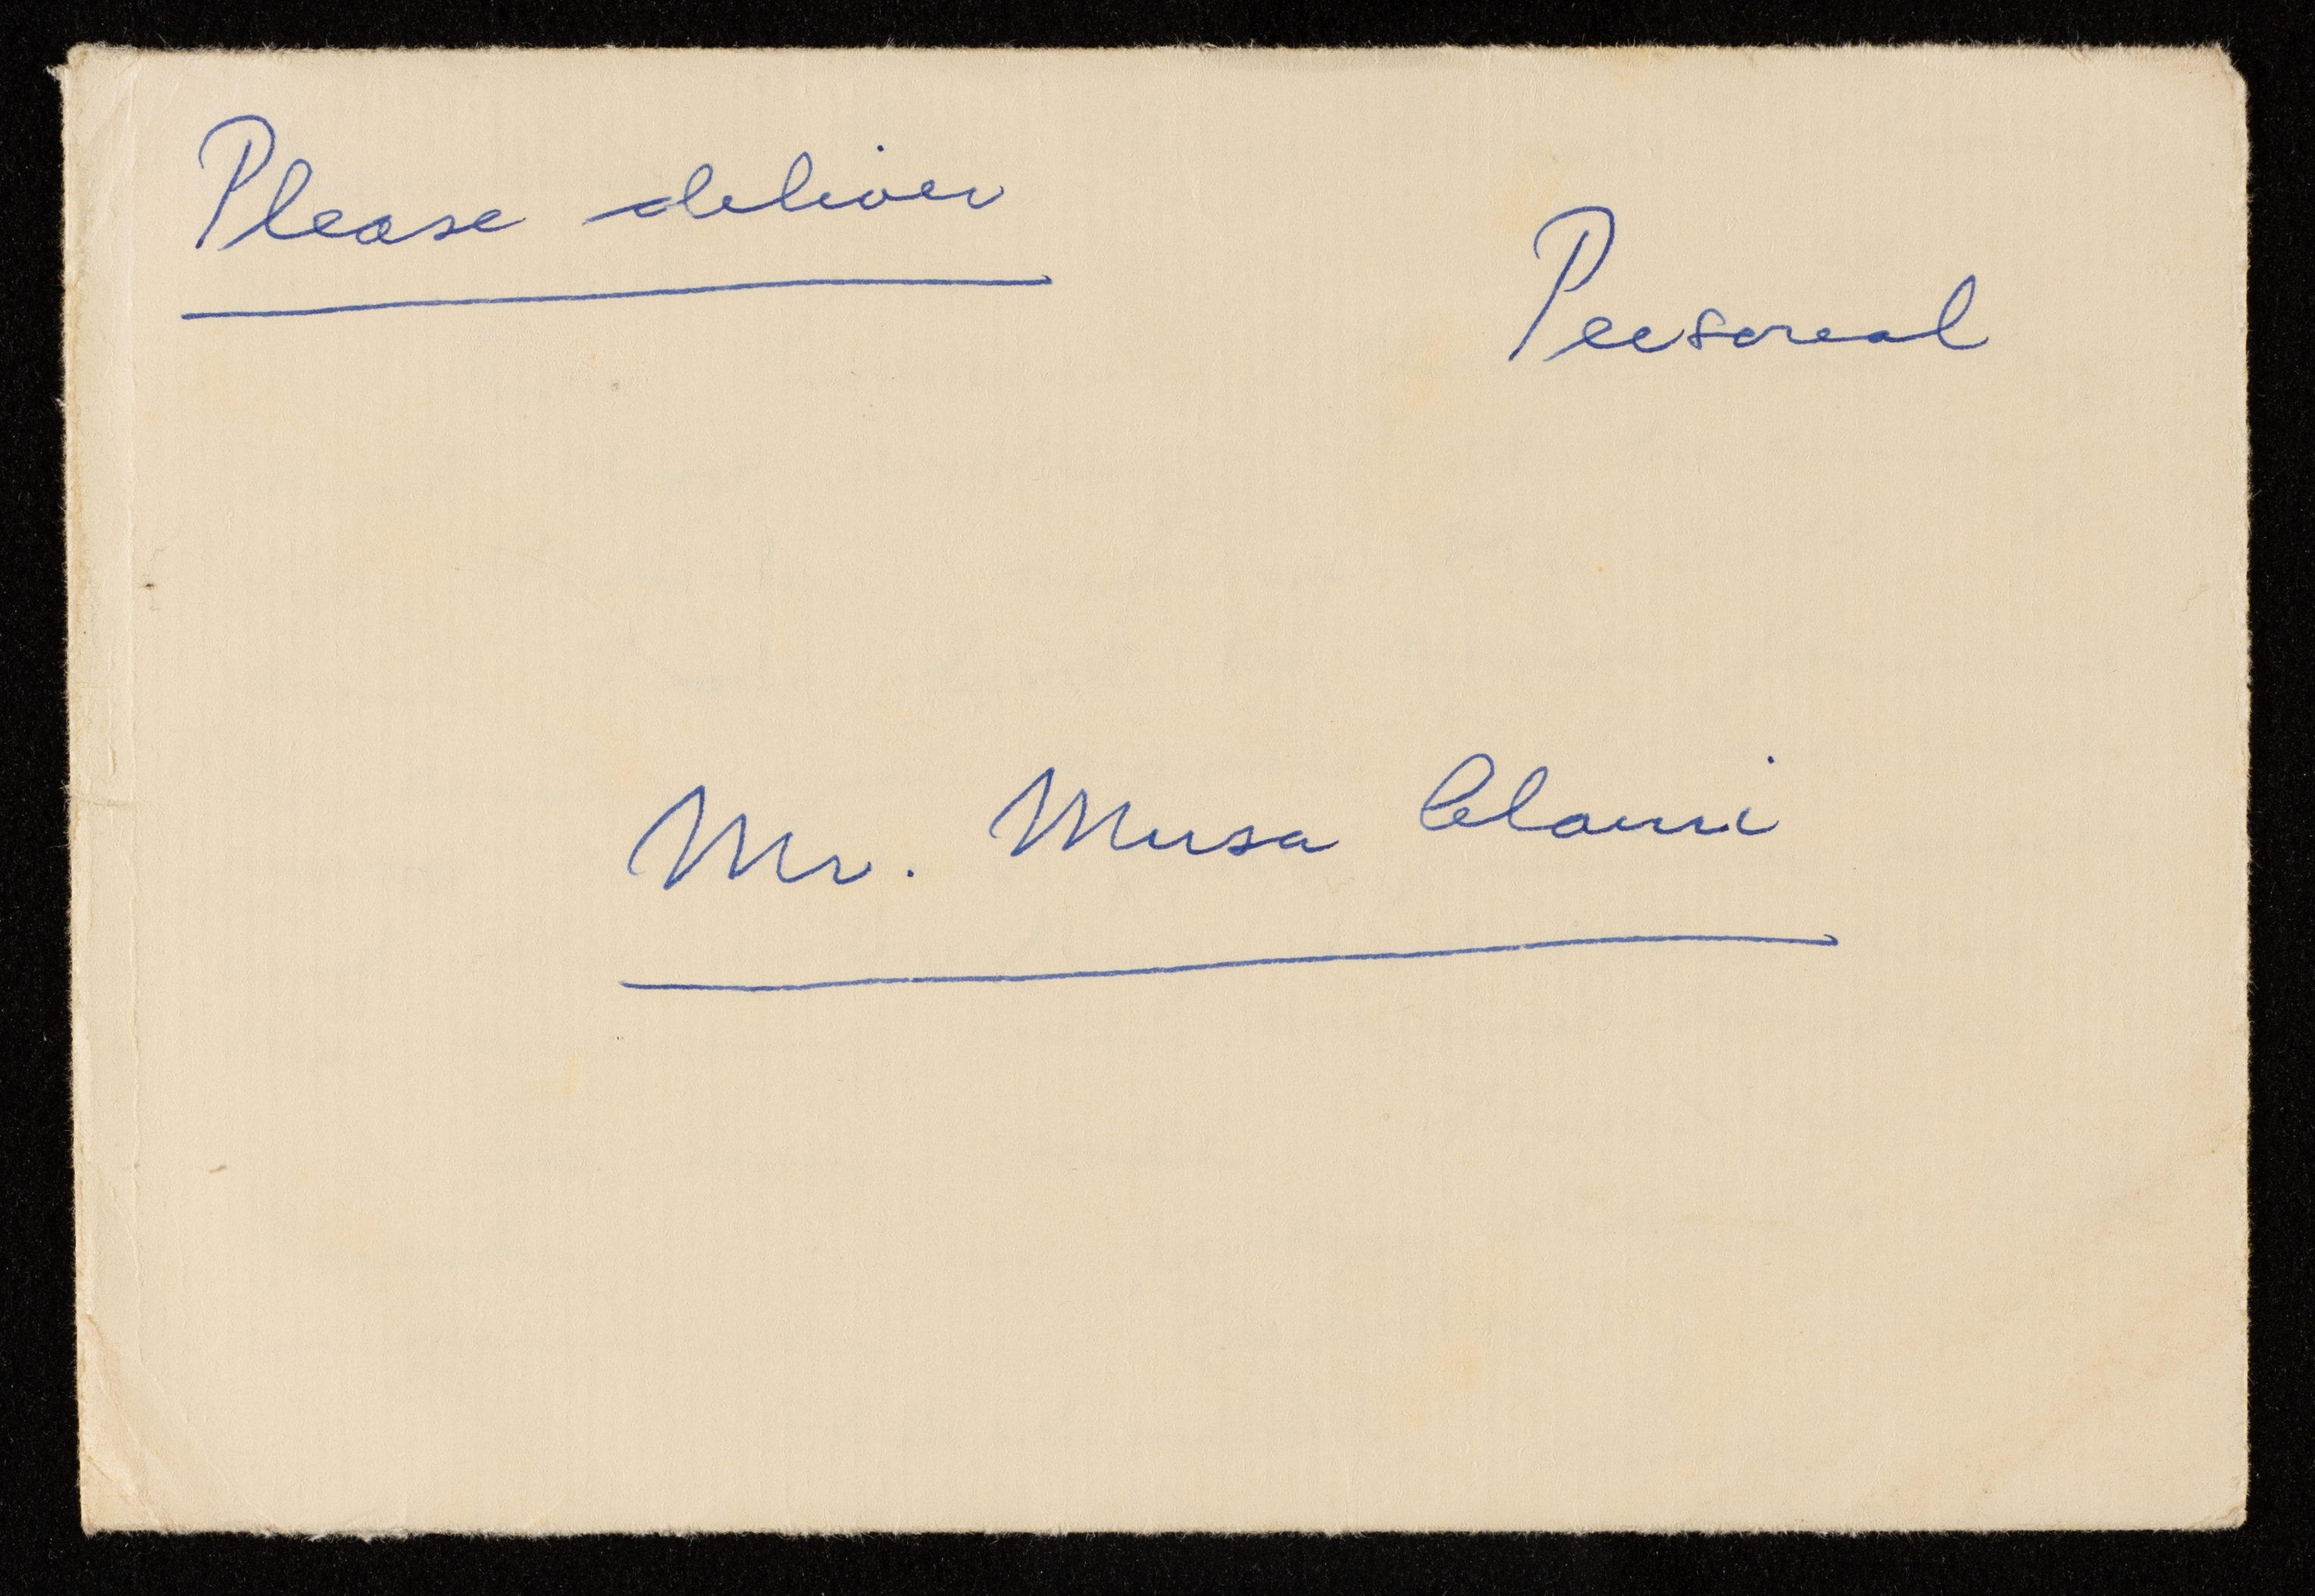 Please deliver
Personal
Mr. Musa Alami